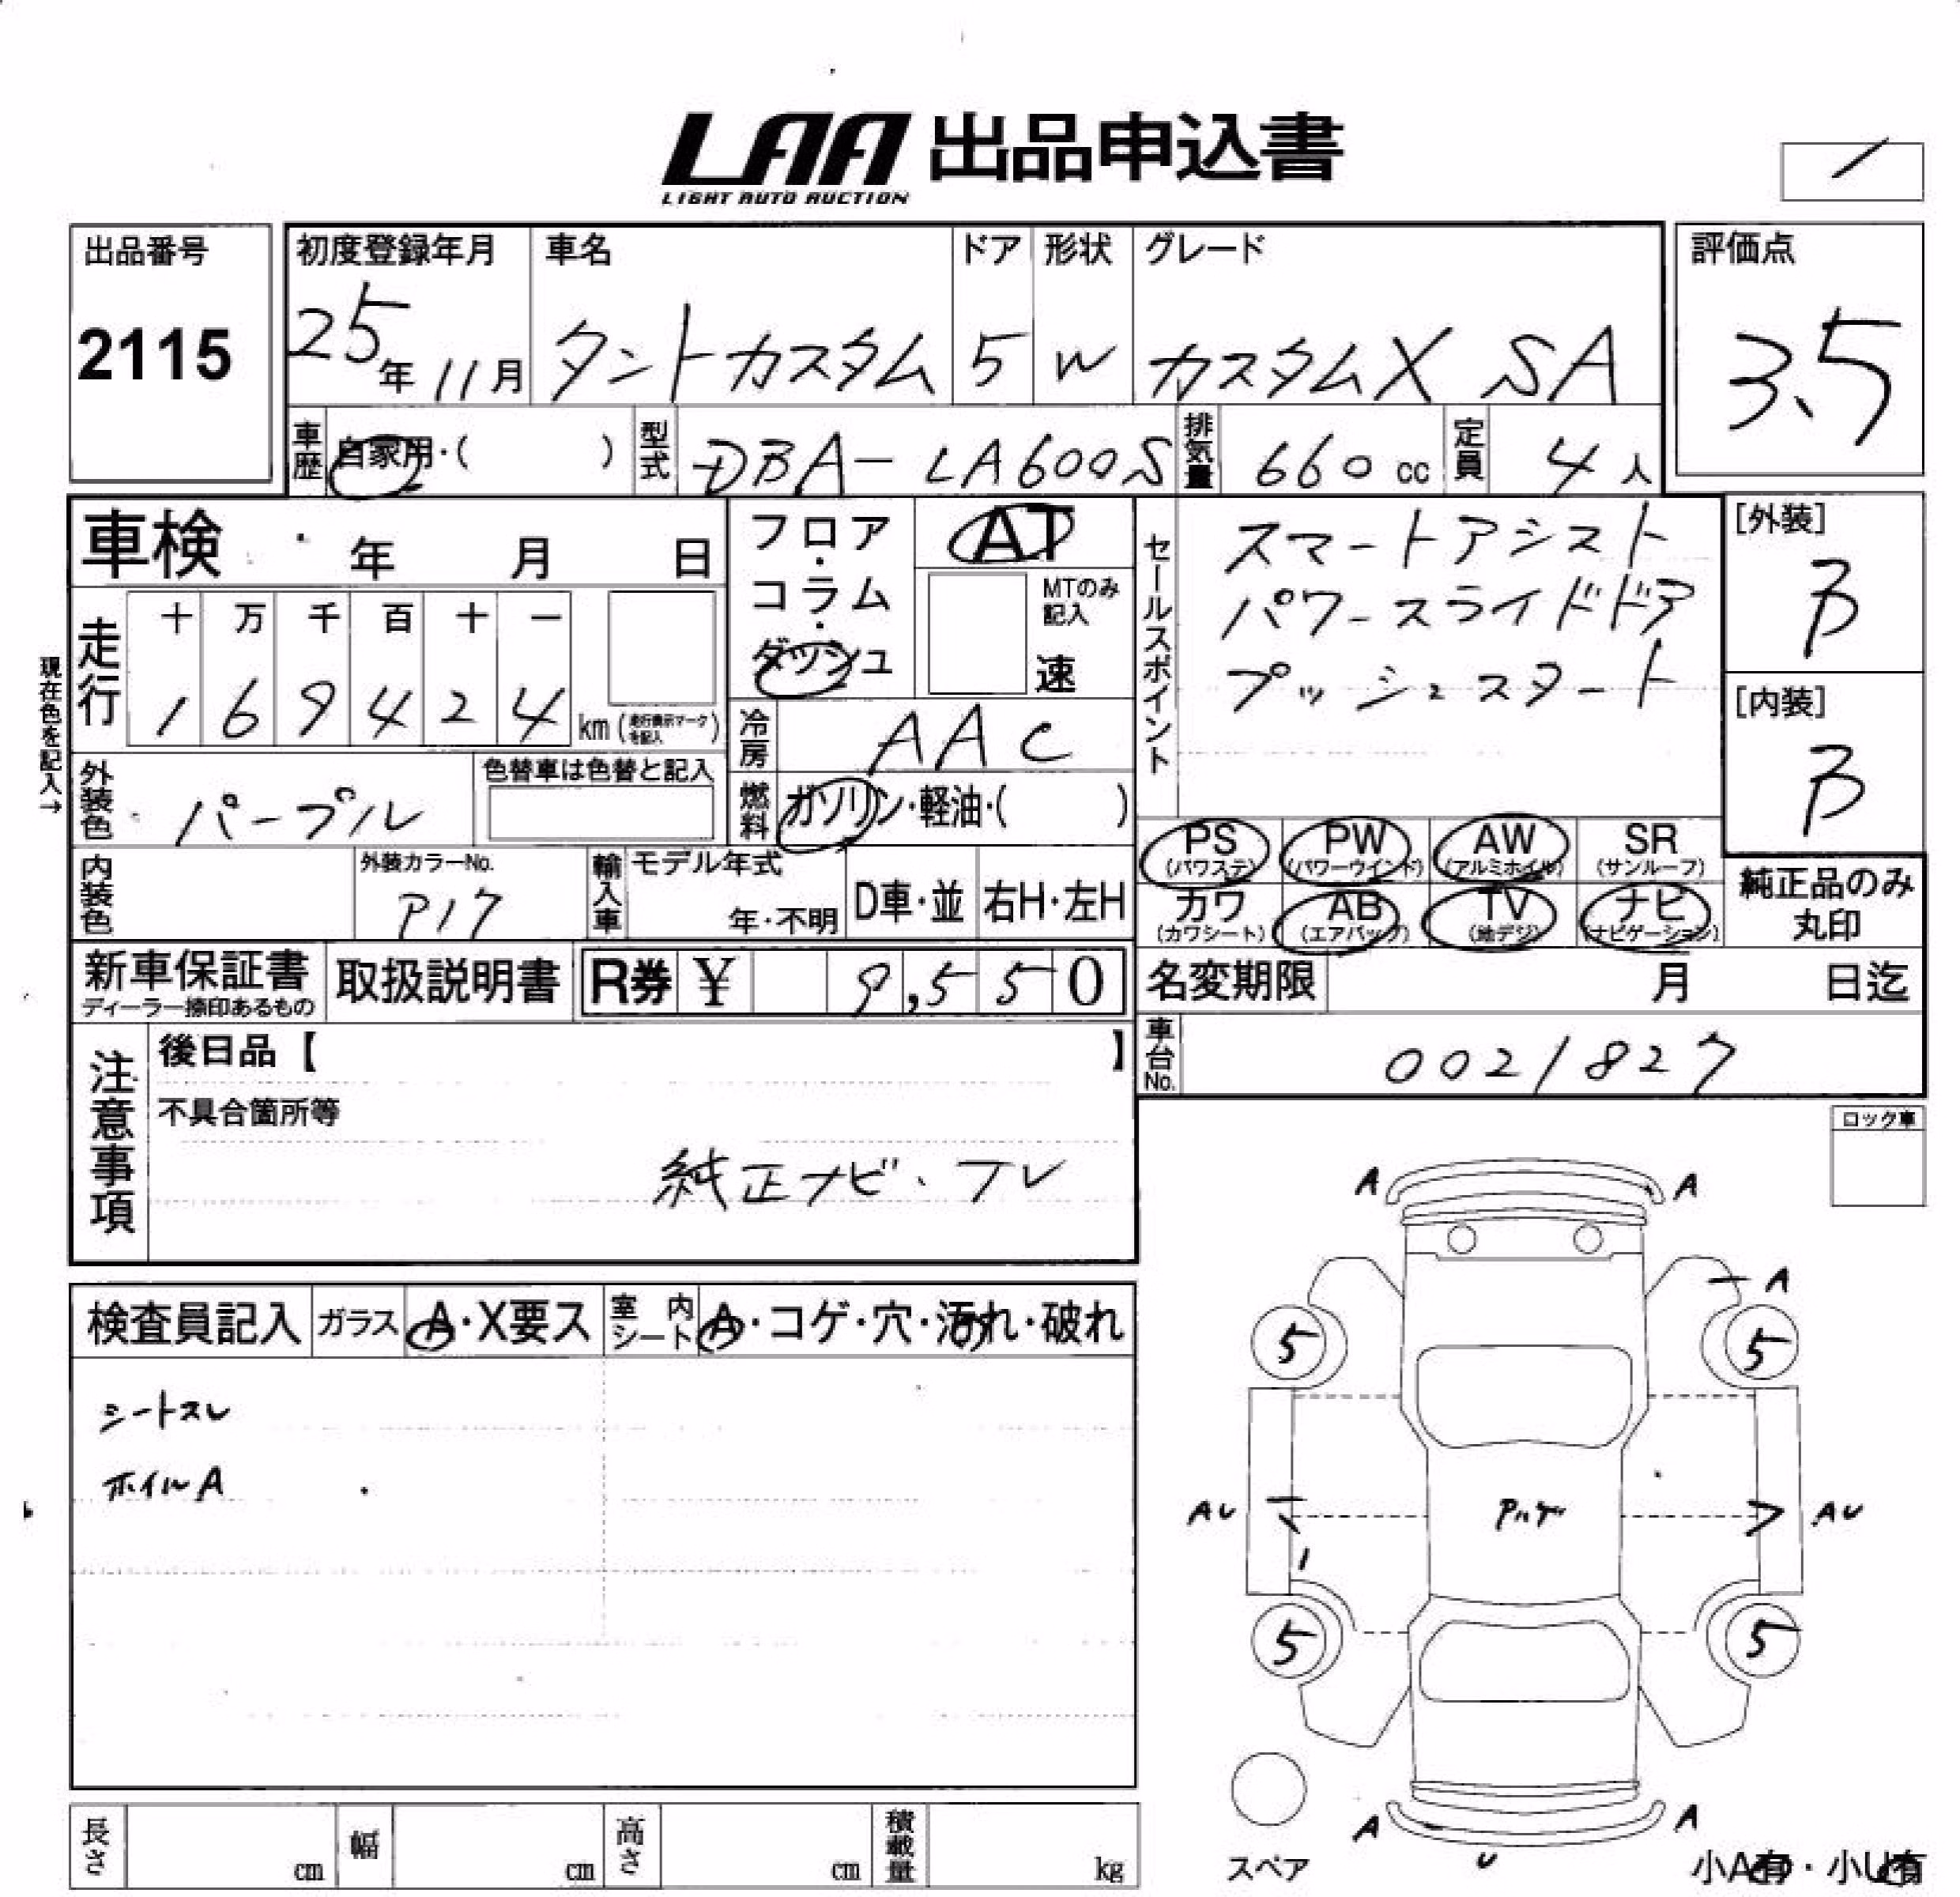 LAA 出品申込書
LIGHT AUTO AUCTION
出品番号
2115
初度登録年月
25年11月
車名
タントカスタム
ドア
5
形状
W
グレード
カスタムX SA
評価点
3.5
車歴
自家用・( )
型式
DBA-LA600S
排気量
660cc
定員
4人
車検 年 月 日
フロア・コラム・ダッシュ
AT
MTのみ記入
速
セールスポイント
スマートアシスト
パワースライドドア
プッシュスタート
[外装]
B
[内装]
B
現在色を記入→
走行
十 万 千 百 十 一
1 6 9 4 2 4 km (走行表示マークを記入)
冷房
AAC
外装色
パープル
色替車は色替と記入
燃料
ガソリン・軽油・( )
PS (パワステ)
PW (パワーウインド)
AW (アルミホイル)
SR (サンルーフ)
カワ (カワシート)
AB (エアバッグ)
TV (地デジ)
ナビ (ナビゲーション)
純正品のみ丸印
内装色
外装カラーNo.
P17
輸入車
モデル年式
年・不明
D車・並
右H・左H
新車保証書
ディーラー捺印あるもの
取扱説明書
R券 ¥ 9,550
名変期限 月 日迄
車台No.
0021827
注意事項
後日品【 】
不具合箇所等
純正ナビ、TV
ロック車
検査員記入
ガラス
A・X要ス
室内シート
A・コゲ・穴・汚れ・破れ
シートスレ
ホイルA
A A
A
5 5
AU AU
5 5
A A
U
スペア
小A有・小U有
長さ cm
幅 cm
高さ cm
積載量 kg